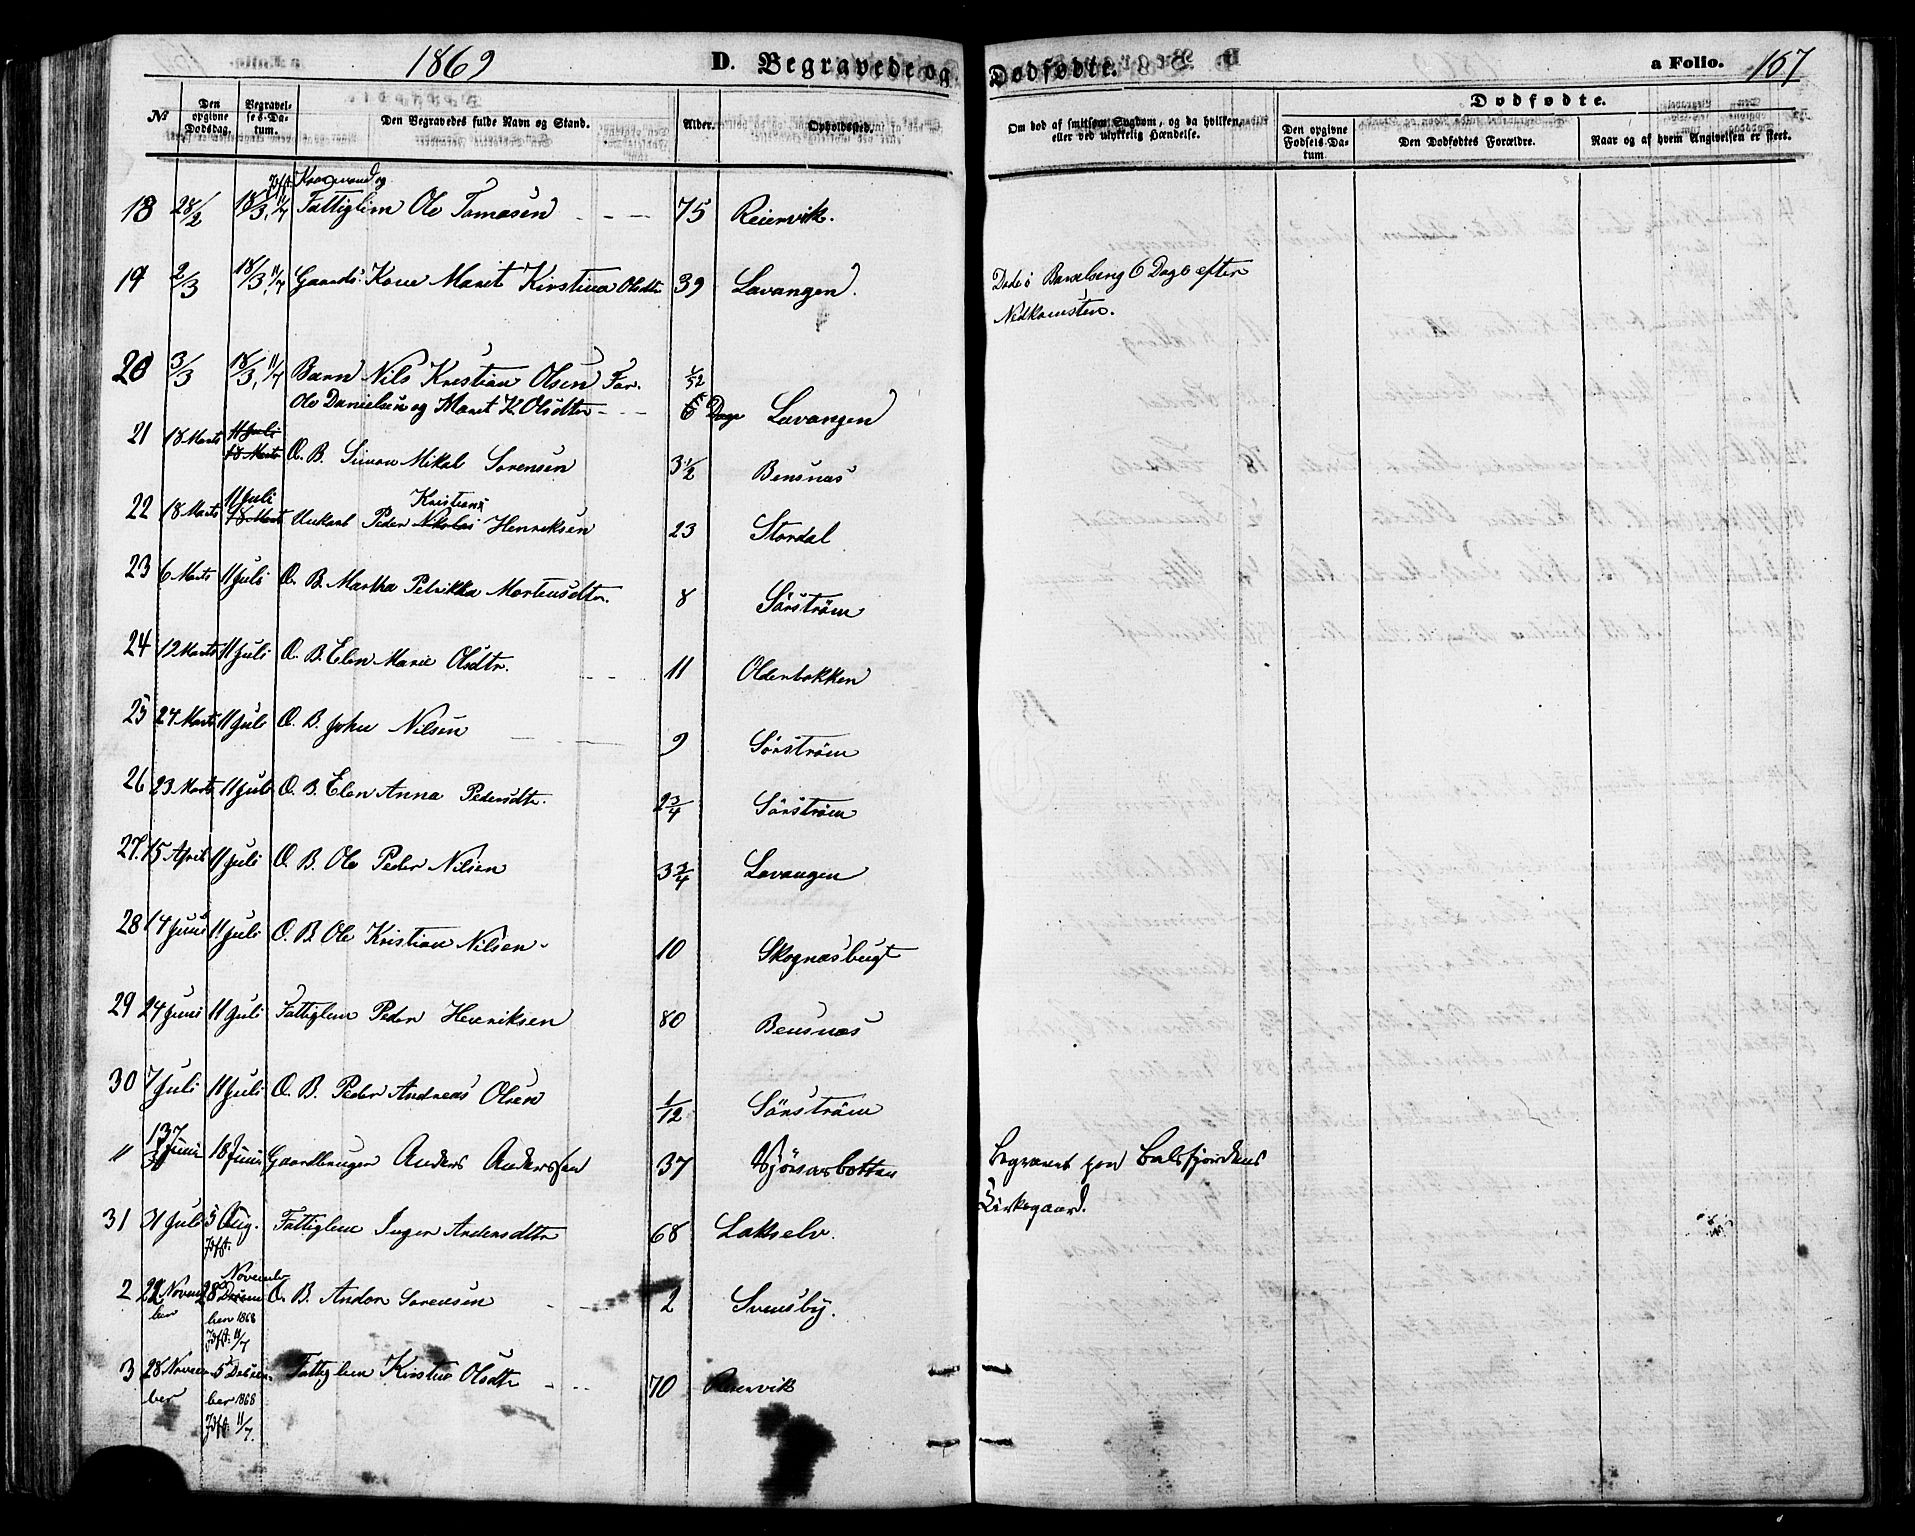 1869 D. Begravede og Dødfødte. a Folio. 167
Dødfødte.
No Den opgivne Dødsdag. Begravelses-Datum. Den Begravedes fulde Navn og Stand. Alder. Opholdssted. Om død af smitsom Sygdom, og da hvilken, eller ved ulykkelig Hændelse. Den opgivne Fødsels-Datum. Den Dødfødtes Forældre. Naar og af hvem Angivelsen er skeet.
Jfst. Kaarmand og
18 28/2 18/3, 11/7 Fattiglem Ole Tomasen 75 Reiervik.
19 2/3 18/3, 11/7 Gaards: Kone Marit Kirstina Olsdtr 39 Lavangen. Døde i Barselseng 6 Dage efter
Nedkomsten.
20 3/3 18/3, 11/7 Barn Nils Kristian Olsen Far.
Ole Danielsen og Marit K. Olsdtr 6 Dage Lavangen
21 18 Marts 11 Juli
18 Marts O. B. Simon Mikal Sørensen 3 1/2 Bensnæs
22 18 Marts 11 Juli
18 Marts Unkarl Peder Nikolai Kristian Henriksen 23 Stordal
23 6 Marts 11 Juli O. B. Martha Petrikka Mortensdtr. 8 Sörström
24 12 Marts 11 Juli O. B. Elen Marie Olsdtr. 11 Olderbakken
25 24 Marts 11 Juli O. B. John Nilsen 9 Sörström
26 23 Marts 11 Juli O. B. Elen Anna Pedersdtr. 2 3/4 Sörström
27. 15 April 11 Juli O. B. Ole Peder Nilsen 3 3/4 Lavangen
28 14 Juni 11 Juli O. B. Ole Kristian Nilsen 10 Skognæsbugt
29 24 Juni 11 Juli Fattiglem Peder Henriksen 80 Bensnæs
30 7 Juli 11 Juli O. B. Peder Andreas Olsen 1/12 Sörström
" Juni 18 Juni Gaardbruger Anders Anderssen 37 Begravet paa Balsfjordens
Kirkegaard.
31 31 Juli 5 Aug. Fattiglem Inger Andersdtr 68 Lakselv.
Jfst:
2 22 November 28 November
Desember 1868 O. B. Andor Sørensen 2 Svensby.
Jfst: 11/7
3 28 November 5 Desember 1868 Fattiglem Kirstine Olsdtr 70 Reiervik
Jfst: 11/7.